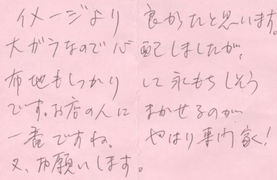 イメージより 良かたと思います。
大ガラなので心配しましたが、
布地もしっかりして永もちしそう
です。お店の人にまかせるのが
一番ですね。やはり専門家!
又、お願いします。